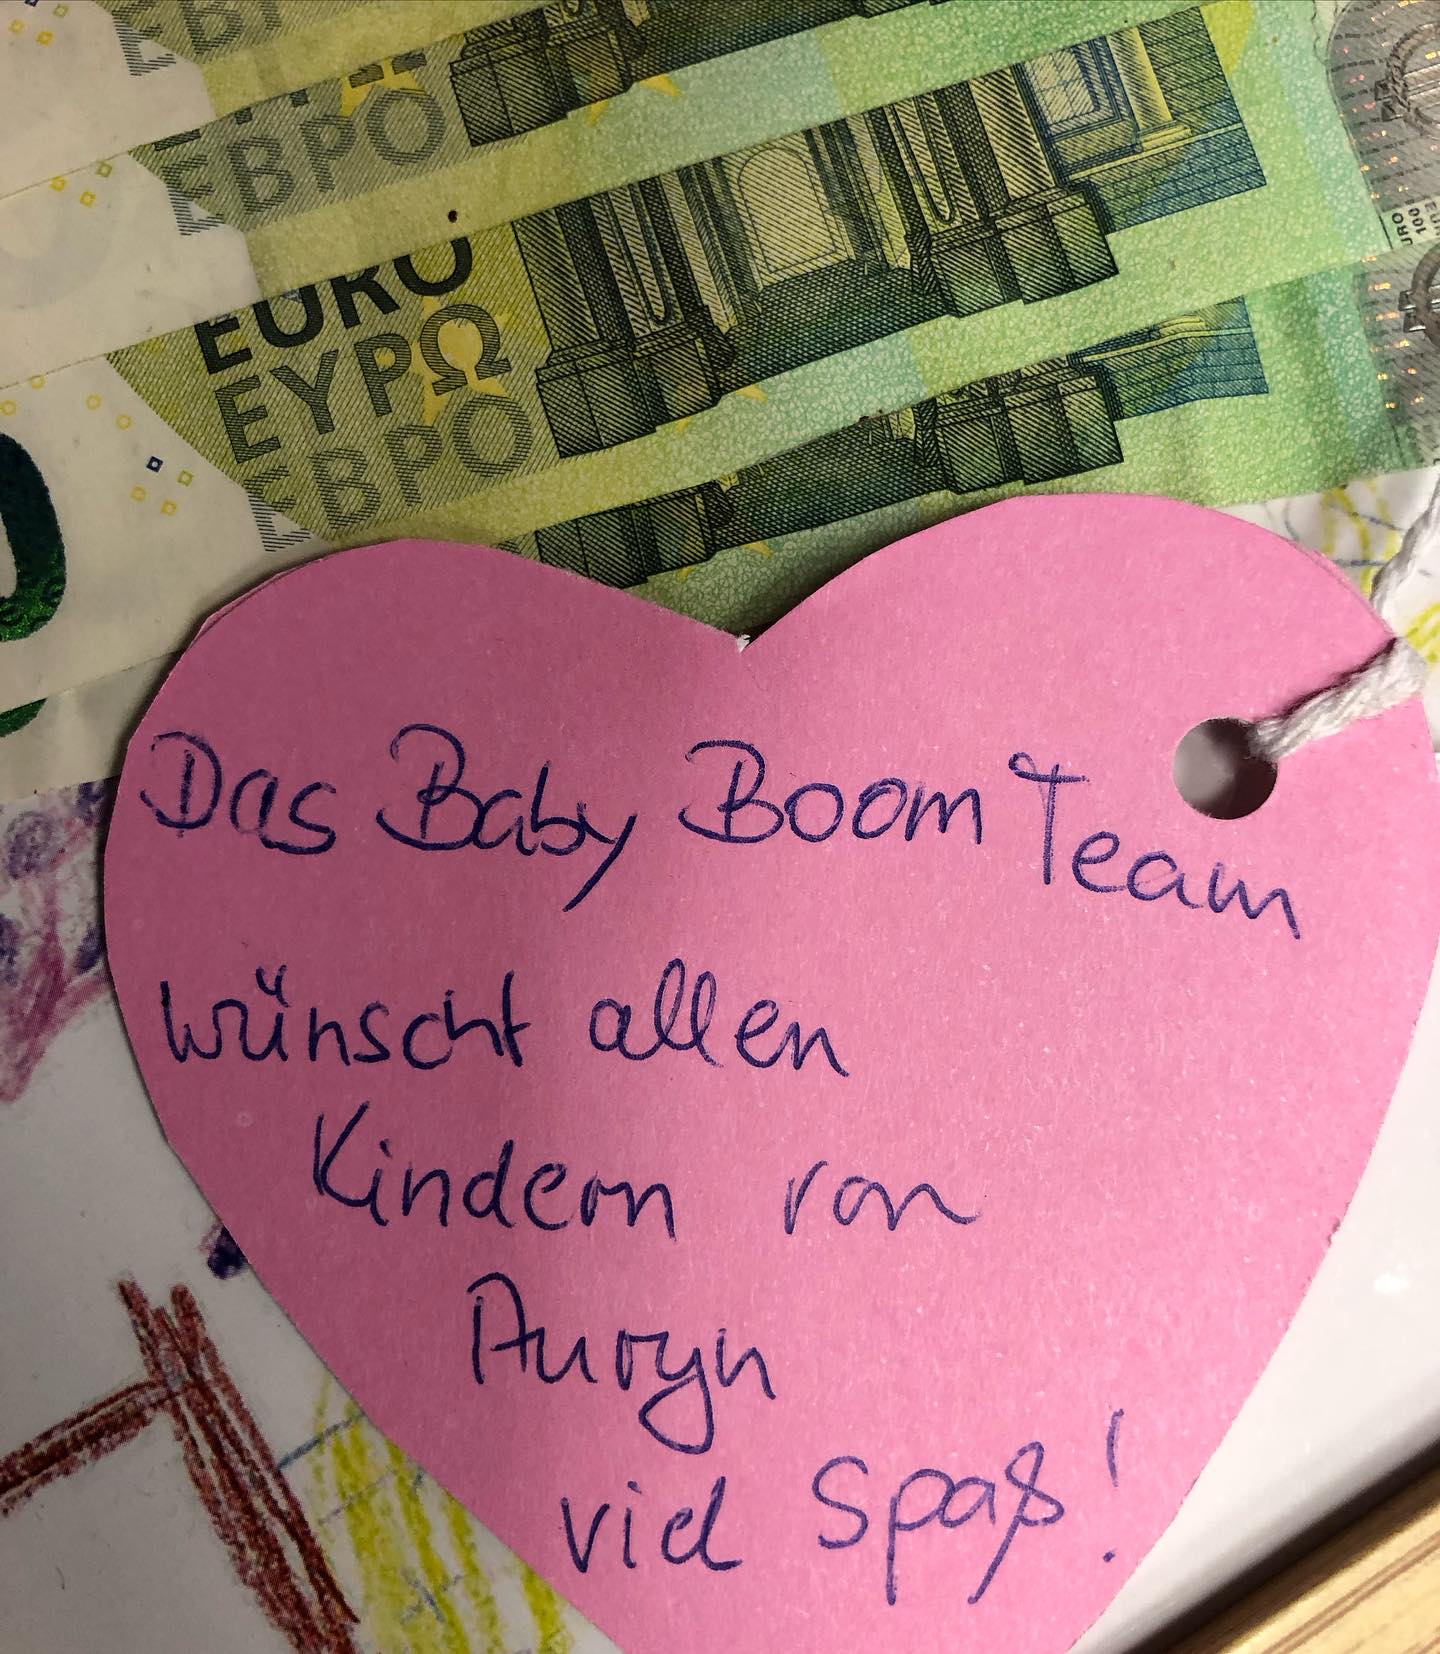 ЕВРО
ЕВРО
EURO
ΕΥΡΩ
ЕВРО
0
Das Baby Boom Team
wünscht allen
Kindern von
Auryn
viel Spaß!